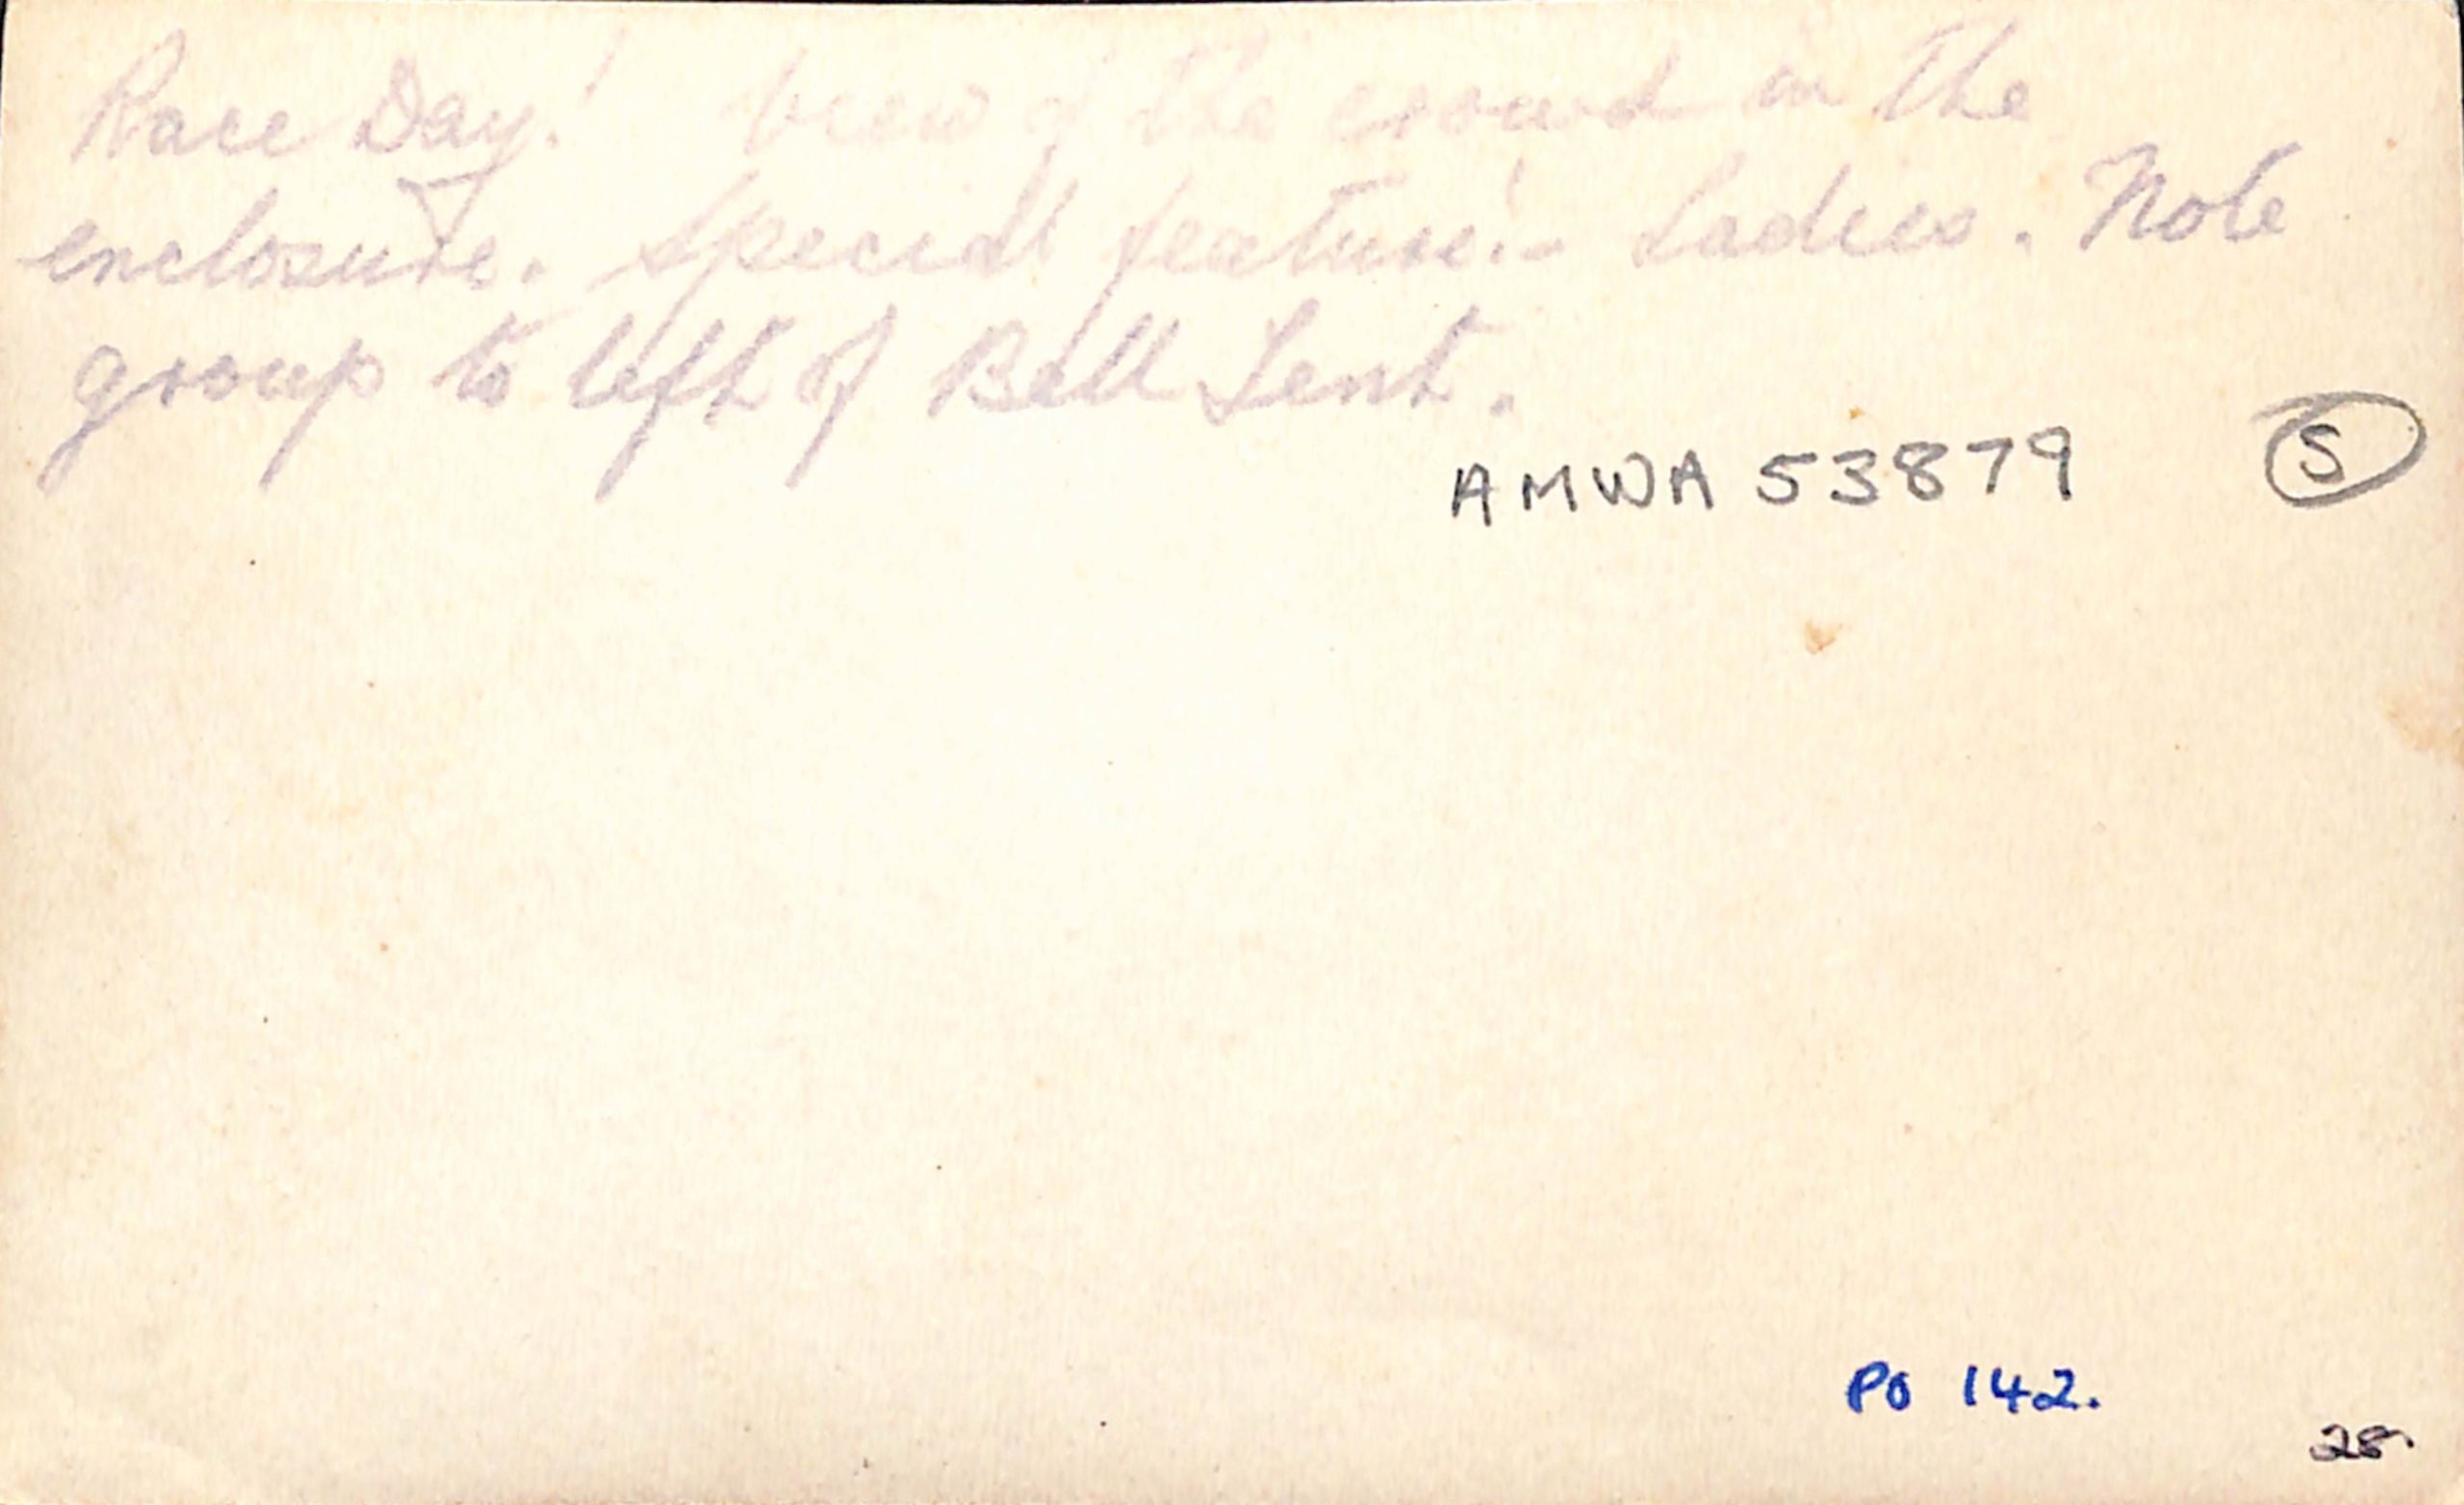 Race Day! View of the crowd in the
enclosure. Special feature:- Ladies. Note
group to left of Bell Tent.
AMWA 53879 S
PO 142.
28